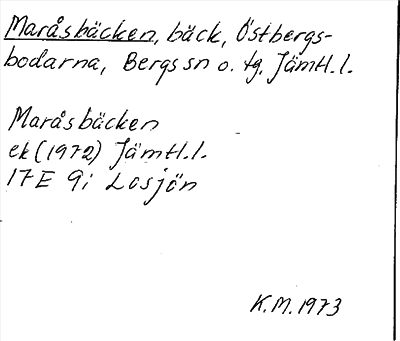 Maråsbäcken, bäck, Östbergs-
bodarna, Bergs sn o. tg. Jämtl.l.
Maråsbäcken
ek (1972) Jämtl.l.
17E 9i Losjön
K.M. 1973